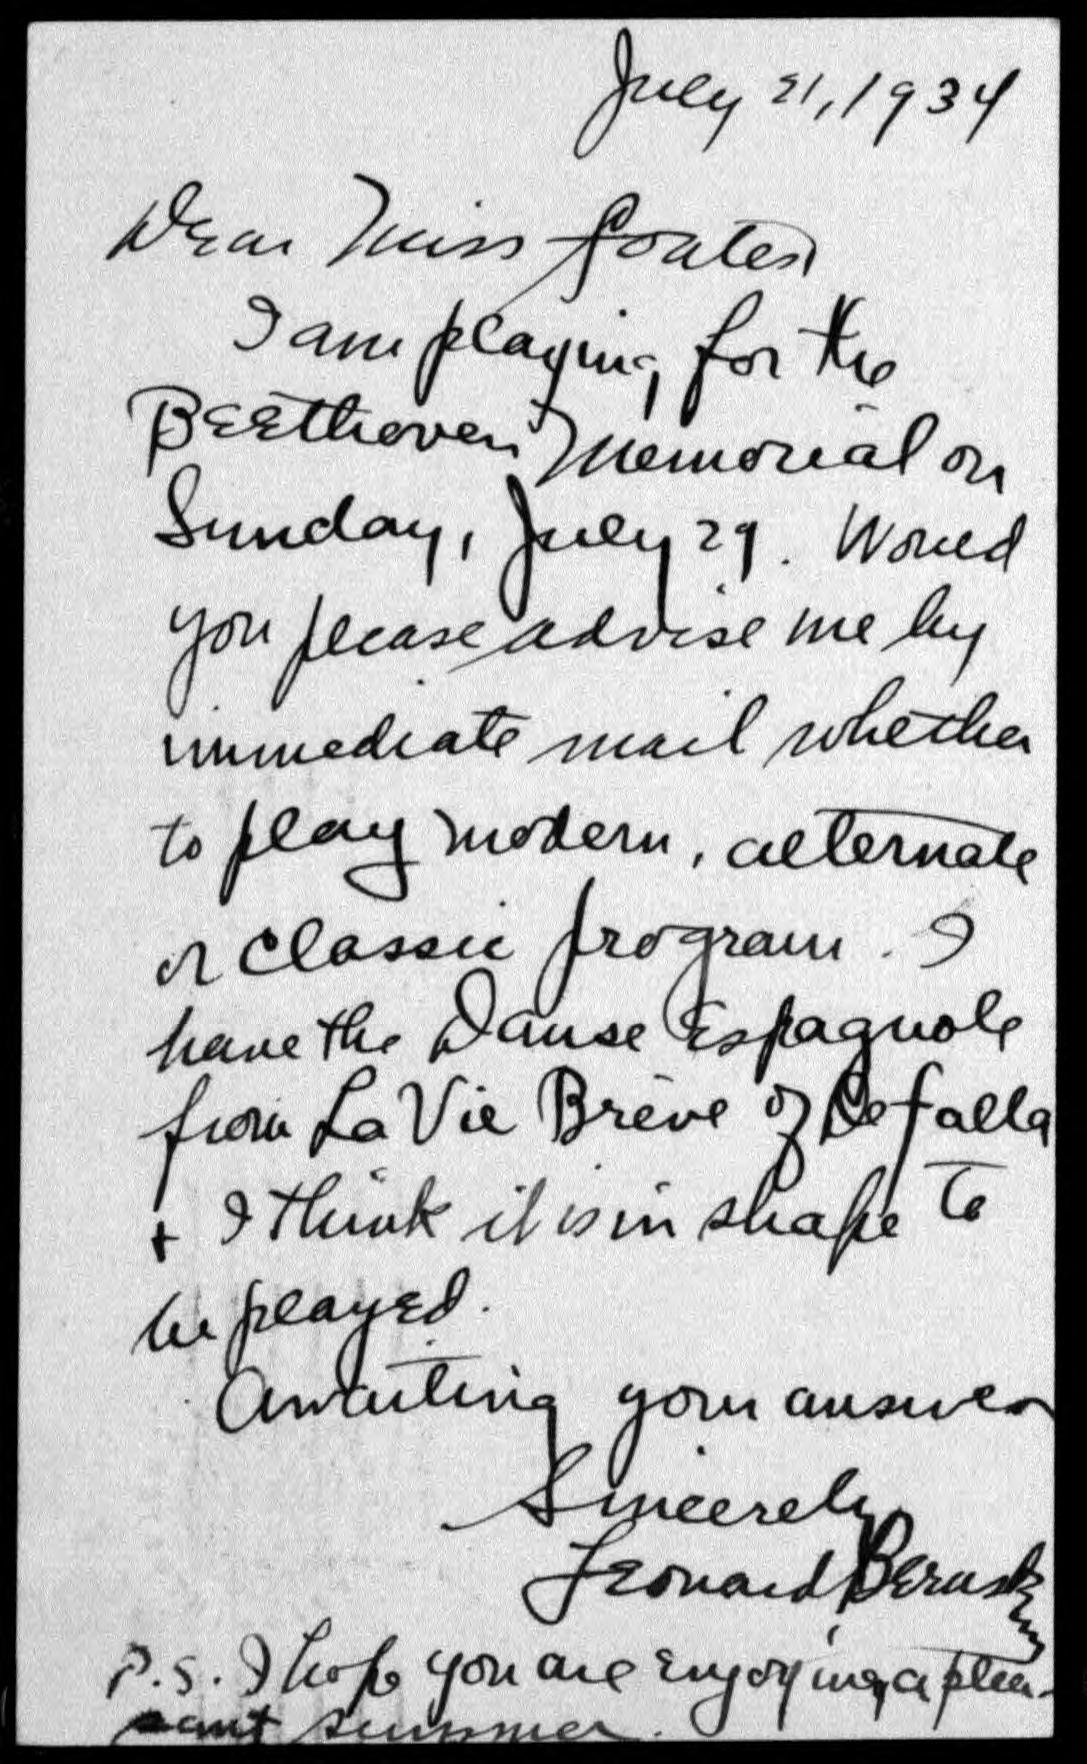 July 21, 1934
Dear Miss Coates
I am playing for the
Beethoven Memorial on
Sunday, July 29. Would
you please advise me by
immediate mail whether
to play modern, alternate
or classic program. I
have the Danse Espagnole
from La Vie Brève of De Falla
+ I think it is in shape to
be played.
Awaiting your answer
Sincerely
Leonard Bernstein
P.S. I hope you are enjoying a plea-
sant summer.